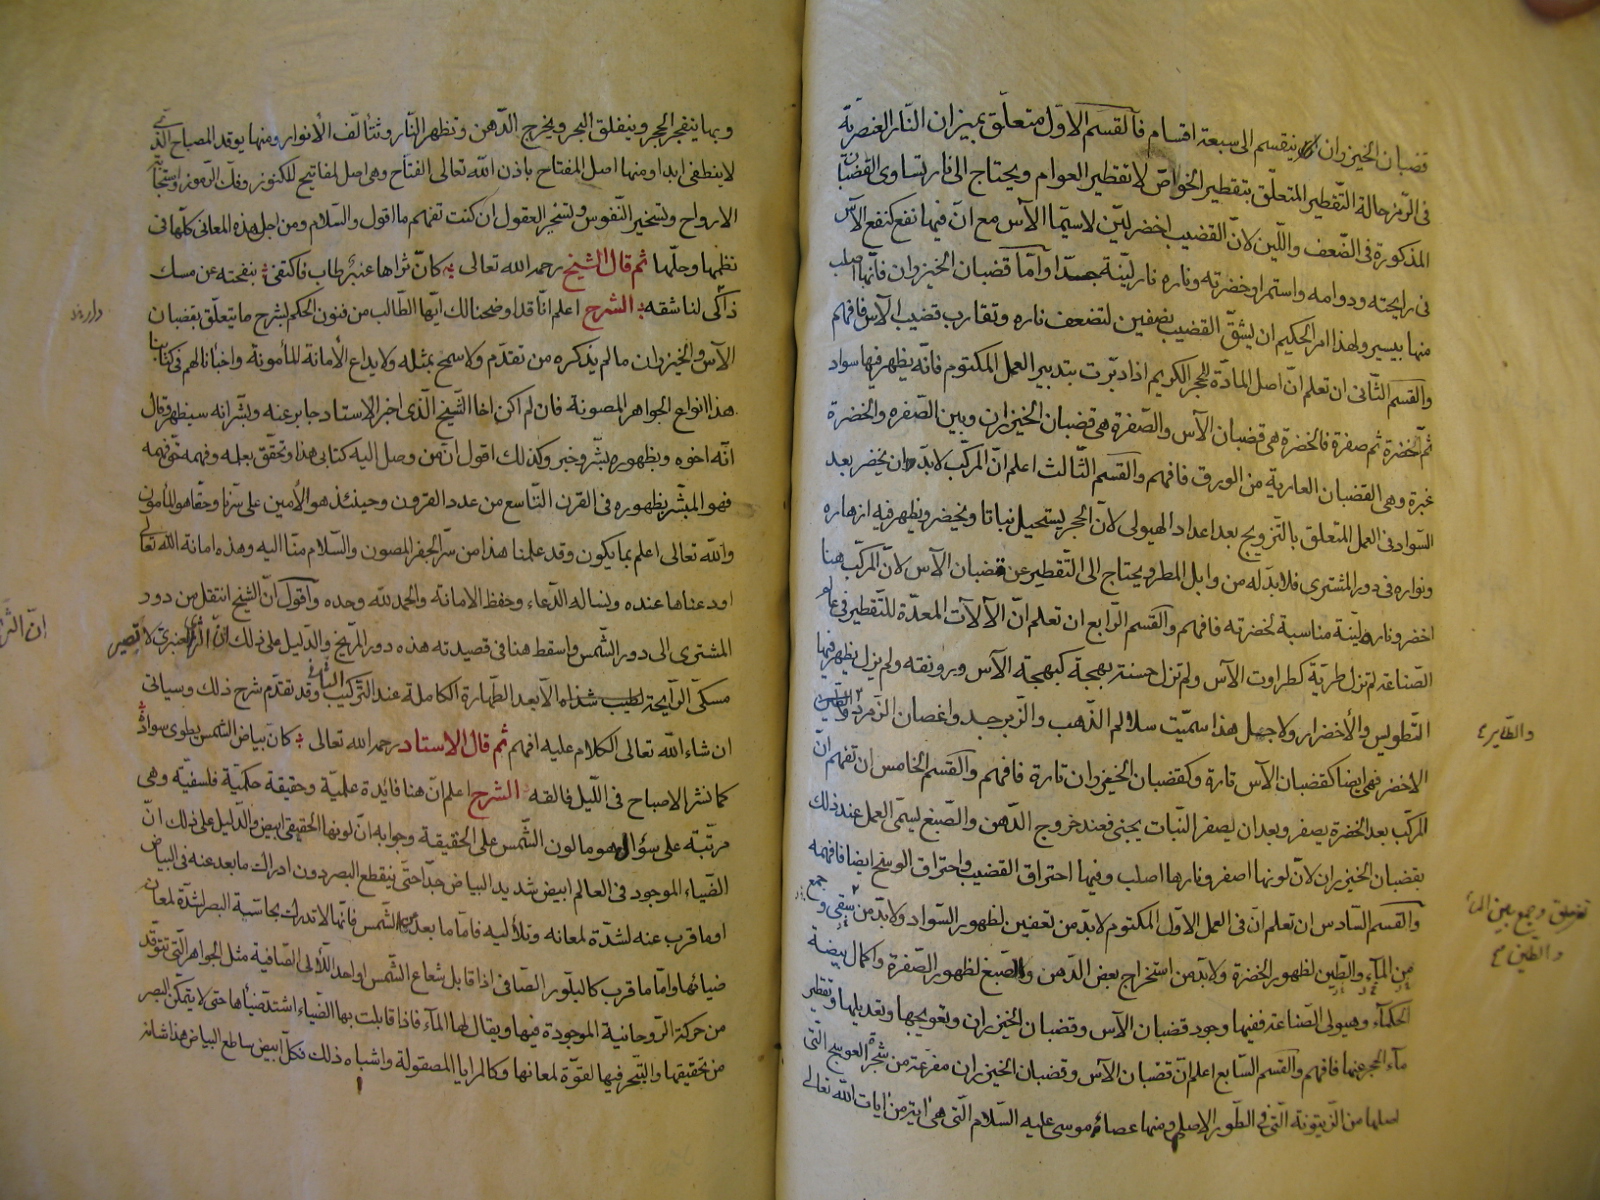 قضبان الخيزران ينقسم الى سبعة اقسام فالقسم الاول متعلق بميزان النار العنصرية
فى الرمز حالة التقطير المتعلق بتقطير الخواص لا تقطير العوام ويحتاج الى نار تساوى القضبان
المذكورة فى الضعف واللين لان القضيب اخضر لين لاسيما الآس مع ان فيها نفع كنفع الآس
فى رايحته ودوامه واستمرار خضرته وناره نار لينة جدا واما قضبان الخيزران فانها اصلب
منها بيسير ولهذا امر الحكيم ان يشق القضيب بنصفين لتضعف ناره وتقارب قضيب الآس فافهم
والقسم الثانى ان تعلم ان اصل المادة الحجر الكريم اذا دبرت بتدبير العمل المكتوم فانه يظهر فيها سواد
ثم خضرة ثم صفرة فالخضرة هى قضبان الآس والصفرة هى قضبان الخيزران وبين الصفره والخضرة
غبرة وهى القضبان العارية من الورق فافهم والقسم الثالث اعلم ان المركب لابد وان يخضر بعد
السواد فى العمل المتعلق بالتزويج بعد اعداد الهيولى لان الحجر يستحيل نباتا ويخضر ويظهر فيه ازهاره
ونواره فى دور المشترى فلا بد له من وابل المطر ويحتاج الى التقطير عن قضبان الآس لان المركب هنا
اخضر وناره لينة مناسبة لخضرته فافهم والقسم الرابع ان تعلم ان الآلات المعدة للتقطير فى عالم
الصناعة لم تزل طرية كطراوت الآس ولم تزل حسنة بهجة كبهجة الآس ورونقه ولم يزل يظهر فيها
التطويس والأخضرار ولاجل هذا سميت سلالم الذهب والزبرجد واغصان الزمرد
والطاير
الاخضر فهى ايضا كقضبان الآس تارة وكقضبان الخيزران تارة فافهم والقسم الخامس ان تفهم ان
المركب بعد الخضرة يصفر وبعد ان يصفر النبات يجنى فعند خروج الدهن والصبغ ليسمى العمل عند ذلك
بقضبان الخيزران لان لونها اصفر ونارها اصلب وفيها احتراق القضيب واحتراق الوسخ ايضا فافهمه
والقسم السادس ان تعلم ان فى العمل الاول المكتوم لابد من تعفين لظهور السواد ولابد من سقى وجمع
من الماء والطين لظهور الخضرة ولابد من استخراج بعض الدهن والصبغ لظهور الصفرة واكمال بيضة
الحكماء وهيولى الصناعة ففيها وجود قضبان الآس وقضبان الخيزران وتعويجها وتعديلها وتقطير
ماء الحجر عنها فافهم والقسم السابع اعلم ان قضبان الآس وقضبان الخيزران مفرعة من شجرة العوسج التى
اصلها من الزيتونة التى فى الطور الاصلى ومنها عصاء موسى عليه السلام التى هى اية من ايات الله تعالى
وبها ينفجر الحجر وينفلق البحر ويخرج الدهن وتظهر النار وتتألف الأنوار ومنها يوقد المصباح الذى
لا ينطفى ابدا ومنها اصل المفتاح باذن الله تعالى الفتاح وهى اصل لمفاتيح للكنوز وفك الرموز واستجابة
الارواح وتسخير النفوس وتسخير العقول ان كنت تفهم ما اقول والسلام ومن اجل هذه المعانى كلها فى
نظمها وحلها ثم قال الشيخ رحمه الله تعالى كان ثراها عنبر طاب فاكتفى بنفحته عن مسك
ذاكى لناشقه الشرح اعلم انا قد اوضحنا لك ايها الطالب من فنون الحكم لشرح ما يتعلق بقضبان
الآس والخيزران ما لم يذكره من تقدم ولا سمح بمثله ولا يداع الأمانة المأمونة واخبأنا لهم فى كتابنا
هذا انواع الجواهر المصونة فان لم اكن اخا الشيخ الذى اخبر الاستاد جابر عنه وبشر انه سيظهر وقال
انه اخوه وبظهوره بشر وخبر وكذلك اقول ان من وصل اليه كتابى هذا وتحقق بعلمه وفهمه حق فهمه
فهو المبشر بظهوره فى القرن التاسع من عدد القرون وحينئذ هو الأمين على سرنا وحقا هو المأمون
والله تعالى اعلم بما يكون وقد علمنا هذا من سر الجفر المصون والسلام منا اليه وهذه امانة الله تعالى
اودعناها عنده ونساله الدعاء وحفظ الامانة والحمد لله وحده واقول ان الشيخ انتقل من دور
المشترى الى دور الشمس واسقط هنا فى قصيدته هذه دور المريخ والدليل على ذلك ان الثرى العنبرى لا تصير
مسكى الرايحة لطيب شذاه الا بعد الطهارة الكاملة عند التركيب الثانى وقد تقدم شرح ذلك وسياتى
ان شاء الله تعالى الكلام عليه افهم ثم قال الاستاد رحمه الله تعالى كان بياض الشمس يطوى سواده
كما نشر الاصباح فى الليل فالقه الشرح اعلم ان هنا فائدة علمية وحقيقة حكمية فلسفية وهى
مرتبة على سؤال هو ما لون الشمس على الحقيقة وجوابه ان لونها الحقيقى ابيض والدليل على ذلك ان
الضياء الموجود فى العالم ابيض شديد البياض جدا حتى ينقطع البصر دون ادراك ما بعد عنه فى البياض
او ما قرب عنه لشدة لمعانه وتلأليه فاما ما بعد الشمس فانها لا تدرك بحاسة البصر لشدة لمعان
ضيائها واما ما قرب كالبلور الصافى اذا قابل شعاع الشمس او احد اللآلى الصافية مثل الجواهر التى تتوقد
من حركة الروحانية الموجودة فيها ويقال لها الماء فاذا قابلت بها الضياء اشتد ضياها حتى لا يتمكن البصر
من تحقيقها والتبحر فيها لقوة لمعانها وكالمرايا المصقولة واشباه ذلك فكل ابيض ساطع البياض هذا شانه
والطاير
وجمع بين الماء
والطين